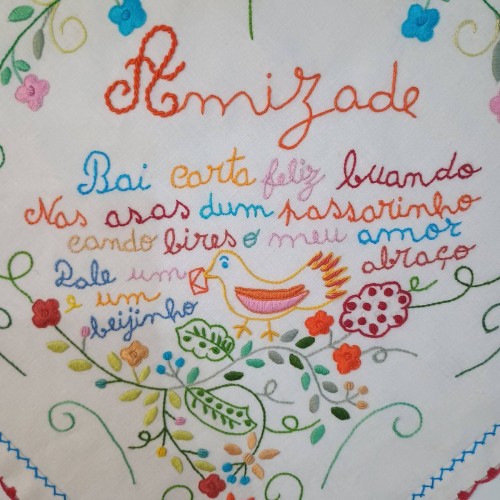 Amizade
Bai carta feliz buando
Nas asas dum passarinho
cando bires o meu amor
Dale um abraço
e um
beijinho